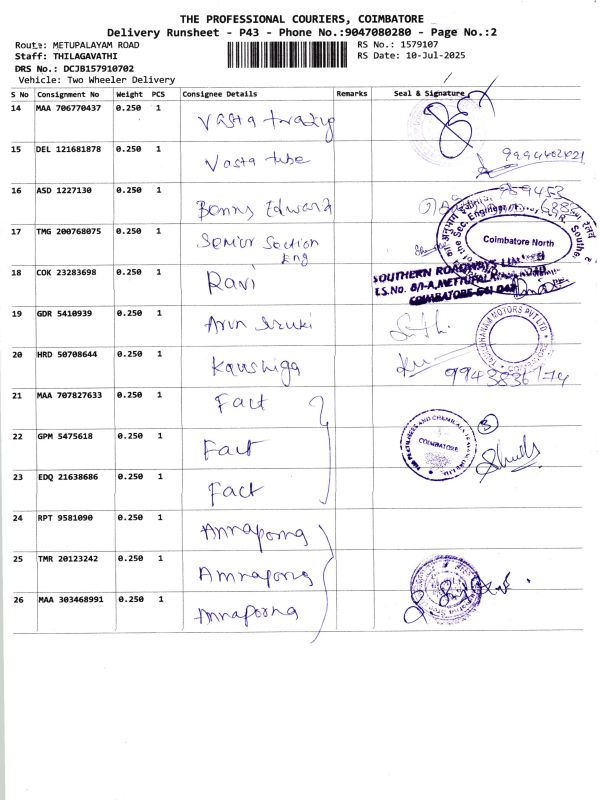 THE PROFESSIONAL COURIERS, COIMBATORE
Delivery Runsheet - P43 - Phone No.:9047080280 - Page No.:2
Route: METUPALAYAM ROAD
RS No.: 1579107
Staff: THILAGAVATHI
RS Date: 10-Jul-2025
DRS No.: DCJB157910702
Vehicle: Two Wheeler Delivery
S No Consignment No Weight PCS Consignee Details Remarks Seal & Signature
14 MAA 706770437 0.250 1 Vasta
15 DEL 121681878 0.250 1 Vasta tube
9994402421
16 ASD 1227130 0.250 1 Benny Edward
17 TMG 200768075 0.250 1 Senior Section Eng
Coimbatore North
18 COK 23283698 0.250 1 Ravi
SOUTHERN ROADWAYS LIMITED
S.No. 8/1-A, METTUPALAYAM ROAD
COIMBATORE-641 043
19 GDR 5410939 0.250 1 Arun Suzuki
20 HRD 50708644 0.250 1 Kaushiga
9943836174
21 MAA 707827633 0.250 1 Fact
22 GPM 5475618 0.250 1 Fact
COIMBATORE
3
23 EDQ 21638686 0.250 1 Fact
24 RPT 9581090 0.250 1 Annaporna
25 TMR 20123242 0.250 1 Annaporna
26 MAA 303468991 0.250 1 Annaporna